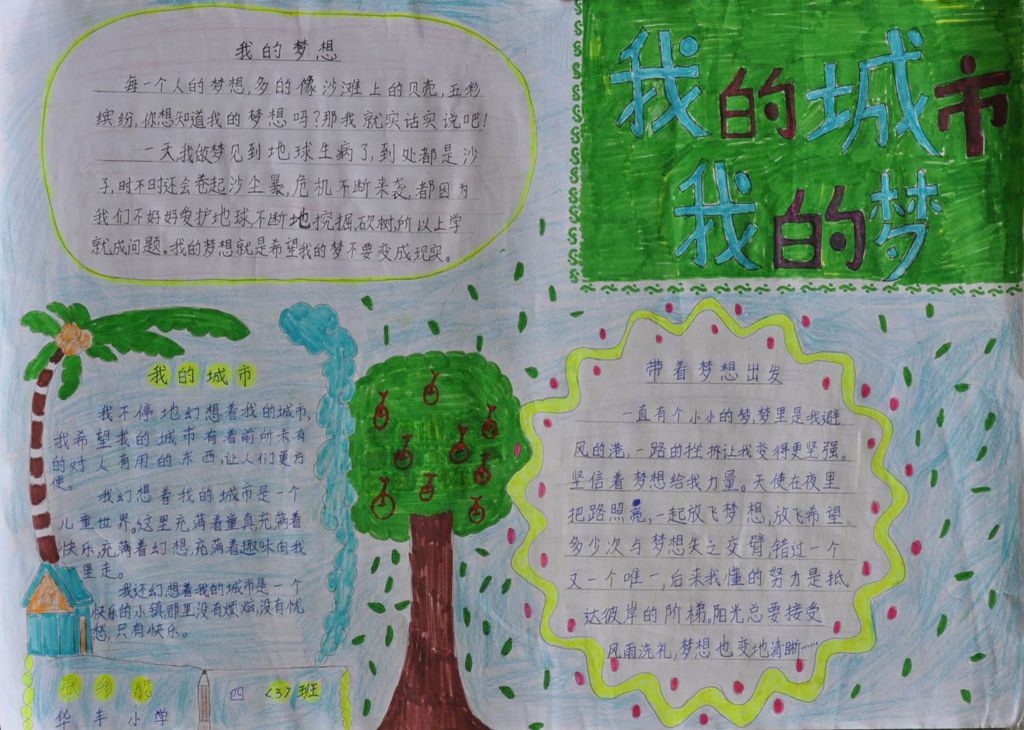 我的城市
我的梦
我的梦想
每一个人的梦想,多的像沙滩上的贝壳,五彩
缤纷,你想知道我的梦想吗?那我就实话实说吧!
一天,我做梦见到地球生病了,到处都是沙
子,时不时还会卷起沙尘暴,危机不断来袭,都因为
我们不好好爱护地球,不断地挖掘,砍树,所以上学
就成问题。我的梦想就是希望我的梦不要变成现实。
我的城市
我不停地幻想着我的城市,
我希望我的城市有着前所未有
的对人有用的东西,让人们更方
便。
我幻想着我的城市是一个
儿童世界。这里充满着童真充满着
快乐,充满着幻想,充满着趣味向我
里走。
我还幻想着我的城市是一个
快乐的小镇,那里没有烦恼,没有忧
愁,只有快乐。
带着梦想出发
一直有个小小的梦,梦里是我避
风的港,一路的挫折让我变得更坚强。
坚信着梦想给我力量。天使在夜里
把路照亮,一起放飞梦想,放飞希望
多少次与梦想失之交臂,错过一个
又一个唯一,后来我懂的努力是抵
达彼岸的阶梯。阳光总要接受
风雨洗礼,梦想也变地清晰……
四 <3> 班
华丰小学